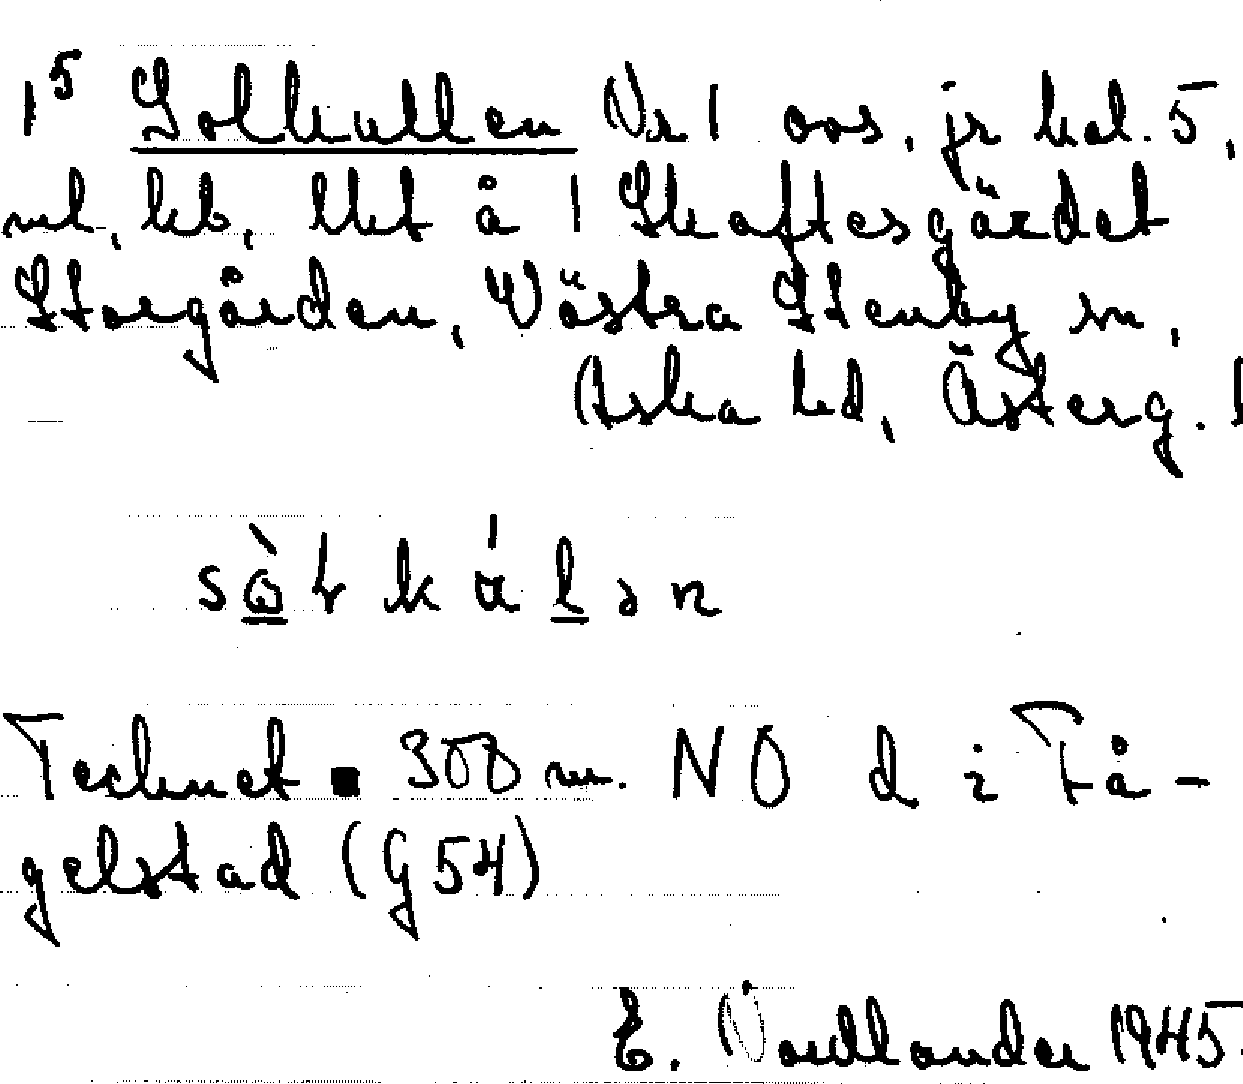 1⁵ Solkullen Nr 1 oos, jr kol. 5,
ml, kb, llkt å 1 Skaftesgärdet
Storgården, Västra Stenby sn,
Aska hd, Österg. l
kǻlən
Tecknet ▪ 300 m. NO d i Få-
gelstad (G54)
E. Nordlander 1945.